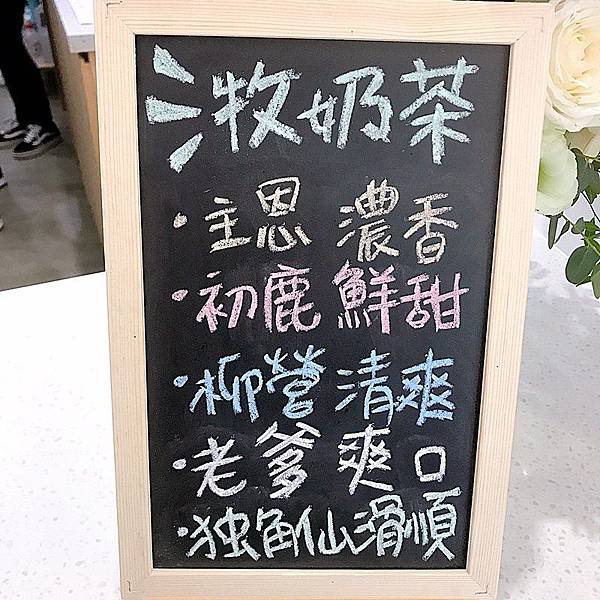 牧奶茶
·主恩 濃香
·初鹿 鮮甜
·柳營 清爽
·老爹 爽口
·独角仙 滑順